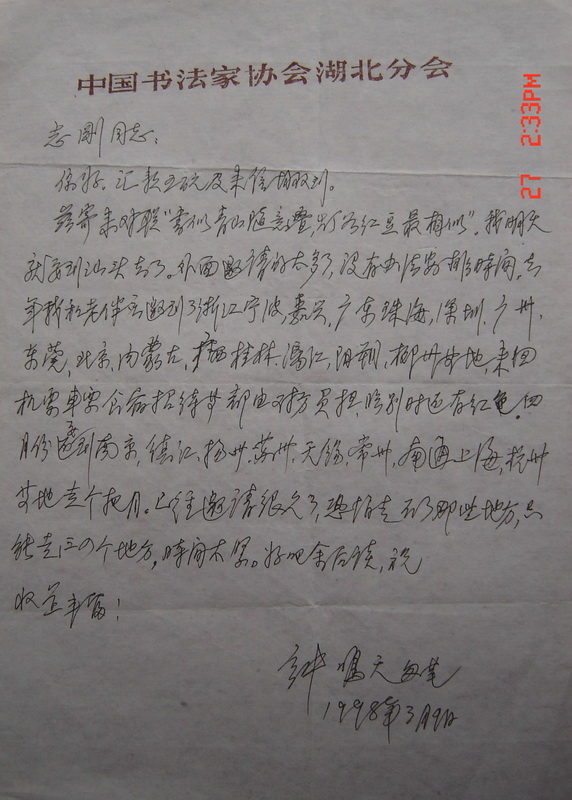 中国书法家协会湖北分会
27 2:33PM
志刚同志：
你好。汇款五砚及来信均收到。
兹寄来对联"书似青山随意叠，灯红豆最相似"。我明天
就要到汕头去了。外面邀请的太多了，没有办法安排时间，去
年我和老伴应邀到了浙江宁波，嘉兴，广东珠海，深圳，广州，
东莞，北京，内蒙古，广西桂林，漓江，阳朔，柳州等地，来回
机票车票食宿招待等都由对方负担，临别时还有红包。四
月份要到南京，镇江，扬州，苏州，无锡，常州，南通上海，杭州
等地走个把月。已经邀请很久了，恐怕走不了那些地方，只
能走三四个地方，时间太紧。好吧余后谈，祝
收益丰富！
钟鸣天
1998年3月9日